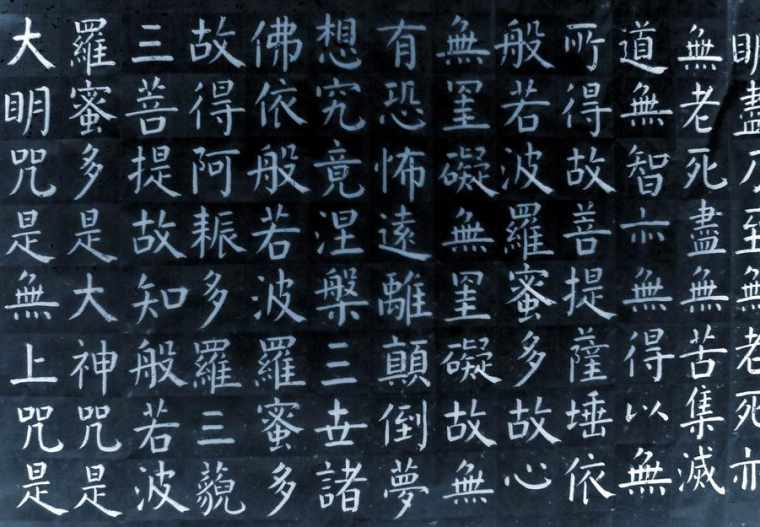 明盡乃至無老死亦
無老死盡無苦集滅
道無智亦無得以無
所得故菩提薩埵依
般若波羅蜜多故心
無罣礙無罣礙故無
有恐怖遠離顛倒夢
想究竟涅槃三世諸
佛依般若波羅蜜多
故得阿耨多羅三藐
三菩提故知般若波
羅蜜多是大神咒是
大明咒是無上咒是